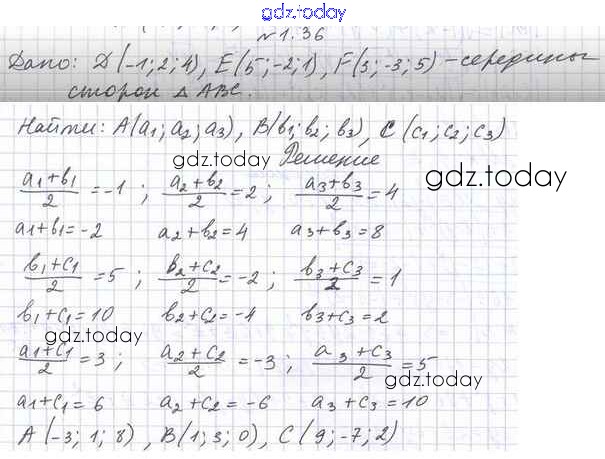 gdz.today
№1.36
Дано: D(-1; 2; 4), E(5; -2; 1), F(3; -3; 5) - середины
сторон Δ ABC.
Найти: A(a1; a2; a3), B(b1; b2; b3), C(c1; c2; c3)
gdz.today Решение
(a1+b1)/2 = -1 ; (a2+b2)/2 = 2 ; (a3+b3)/2 = 4 gdz.today
a1+b1=-2 a2+b2=4 a3+b3=8
(b1+c1)/2 = 5 ; (b2+c2)/2 = -2 ; (b3+c3)/2 = 1
b1+c1=10 b2+c2=-4 b3+c3=2
gdz.today gdz.today
(a1+c1)/2 = 3 ; (a2+c2)/2 = -3 ; (a3+c3)/2 = 5
gdz.today
a1+c1=6 a2+c2=-6 a3+c3=10
A(-3; 1; 8), B(1; 3; 0), C(9; -7; 2)